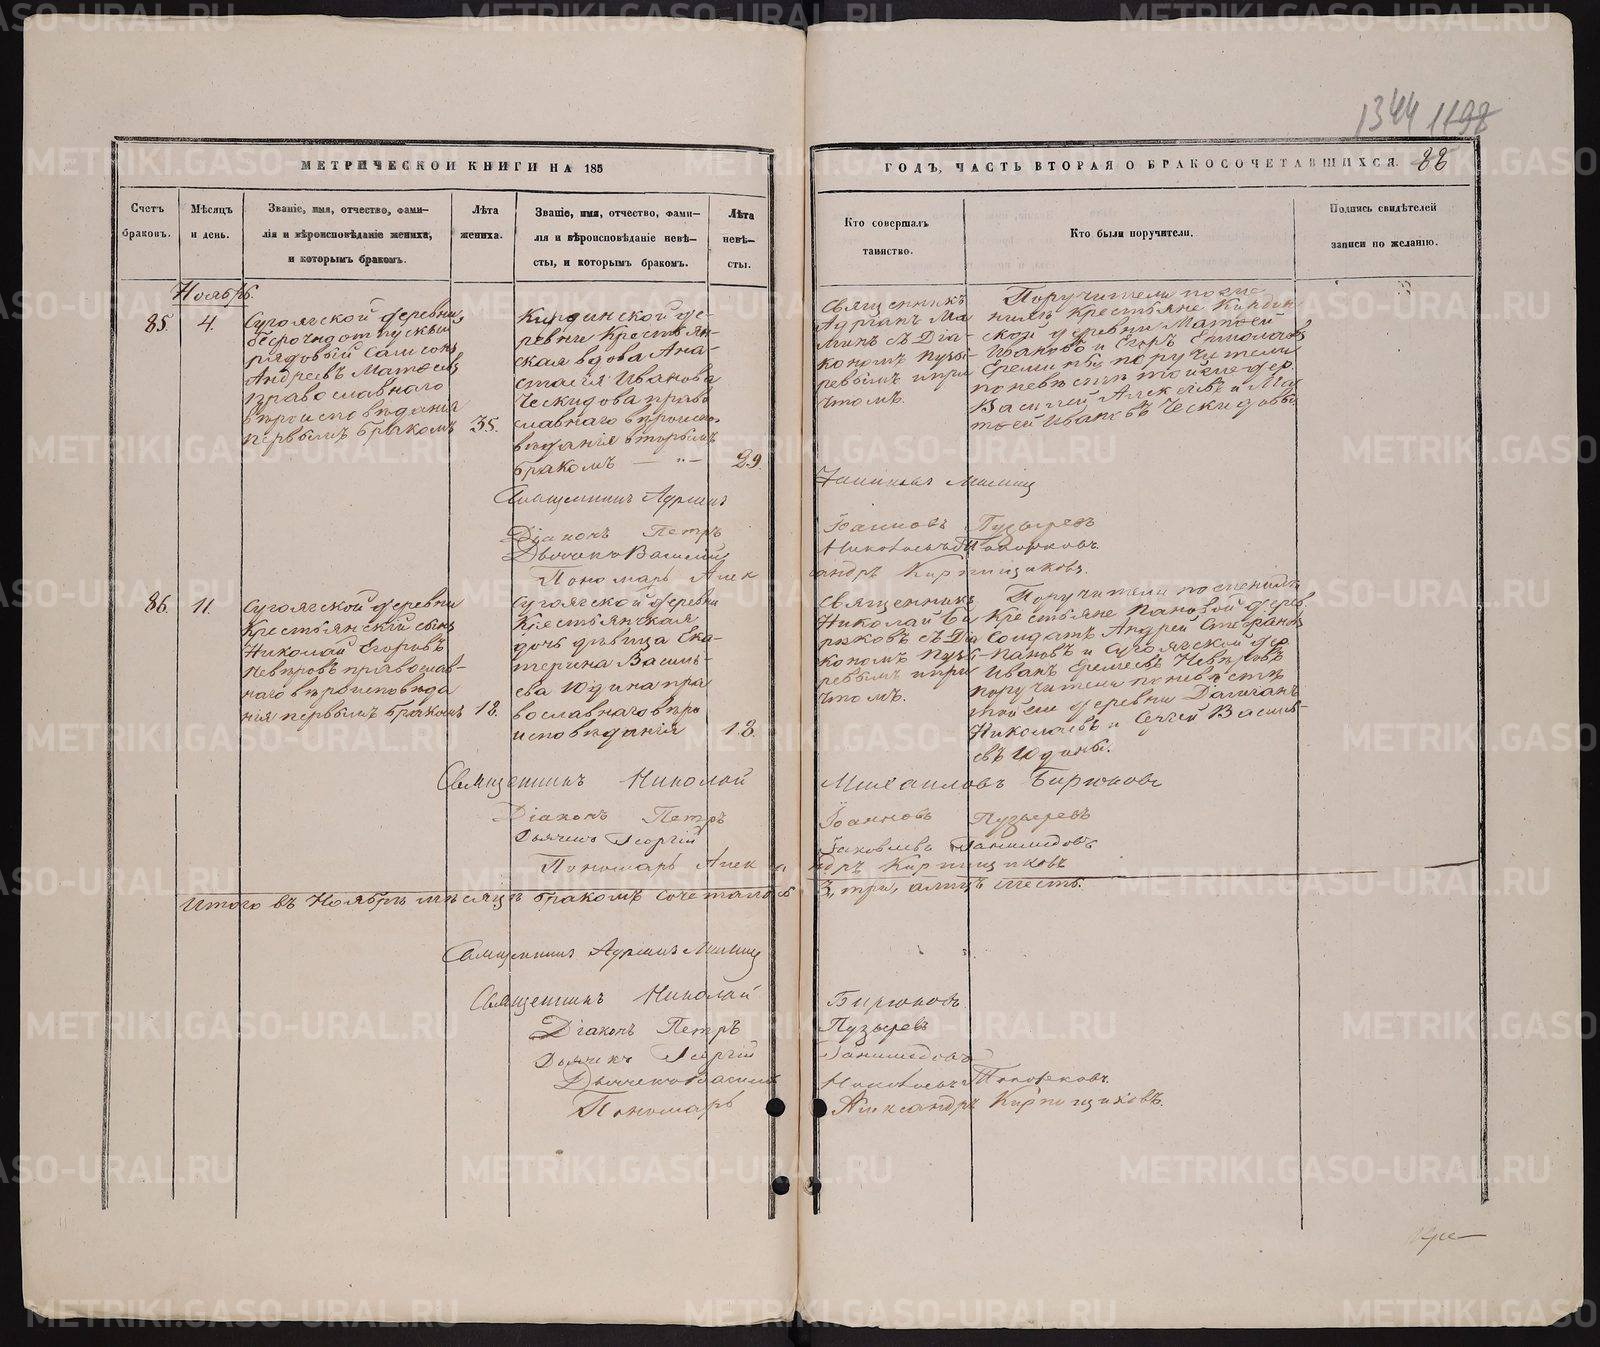 1344 1198
МЕТРИЧЕСКОЙ КНИГИ НА 185
ГОДЪ, ЧАСТЬ ВТОРАЯ О БРАКОСОЧЕТАВШИХСЯ. 88
Счетъ браковъ.
Мѣсяцъ и день.
Званіе, имя, отчество, фами-
лія и вѣроисповѣданіе жениха,
и которымъ бракомъ.
Лѣта
жениха.
Званіе, имя, отчество, фами-
лія и вѣроисповѣданіе невѣ-
сты, и которымъ бракомъ.
Лѣта
невѣ-
сты.
Кто совершалъ
таинство.
Кто были поручители.
Подпись свидѣтелей
записи по желанію.
Ноябрь.
85. 4.
Сугоякской деревни
безсрочноотпускный
рядовый Самсонъ
Андреевъ Матвеевъ
православнаго
вѣроисповѣданія
первымъ бракомъ 35.
Кирдинской де-
ревни Крестьян-
ская вдова Ана-
стасія Иванова
Ческидова право
славнаго вѣроиспо-
вѣданія вторымъ
бракомъ — „ — 29.
Священникъ
Адріанъ Ма
минъ съ Діа-
кономъ Пузы-
ревымъ и при
чтомъ.
Поручители по же-
нихѣ Крестьяне Кирдин
ской деревни Матвей
Ивановъ и Егоръ Ермолаевъ
поручители
по невѣстѣ той же дер.
Василій Алексѣевъ и Ма
твей Ивановъ Ческидовы
Священникъ Адріанъ
Іоакимовъ Маминъ
Діаконъ Петръ Іоанновъ Пузыревъ
Дьячекъ Василій Топорковъ.
Пономарь Алек андръ Кирпищиковъ.
86. 11.
Сугоякской деревни
Крестьянскій сынъ
Николай Егоровъ
Невѣровъ православ-
наго вѣроисповѣда
нія первымъ бракомъ 18.
Сугоякской деревни
Крестьянская
дочь дѣвица Ека-
терина Василь-
ева Юдина пра
вославнаго вѣро
исповѣданія 18.
Священникъ
Николай Би
рюковъ съ Діа
кономъ Пузы-
ревымъ и при
чтомъ.
Поручители по женихѣ
Крестьяне Пановой дерев.
Солдатъ Андрей Степановъ
Пановъ и Сугоякской дер.
Иванъ Еремѣевъ Невѣровъ
поручители по невѣстѣ
той же деревни
Николаевъ и Сергей Василь-
евъ Юдины.
Священникъ Николай Михаиловъ Бирюковъ
Діаконъ Петръ Іоанновъ Пузыревъ
Дьячекъ Георгій Іаковлевъ Ганимедовъ
Пономарь Алек а ндръ Кирпищиковъ
Итого въ Ноябрѣ мѣсяцѣ бракомъ сочеталось 3, три,
Священникъ Адріанъ Маминъ
Священникъ Николай Бирюковъ.
Діаконъ Петръ Пузыревъ
Дьячекъ Георгій Ганимедовъ
Дьячекъ Василій Топорковъ.
Пономарь Александръ Кирпищиковъ.
METRIKI.GASO-URAL.RU